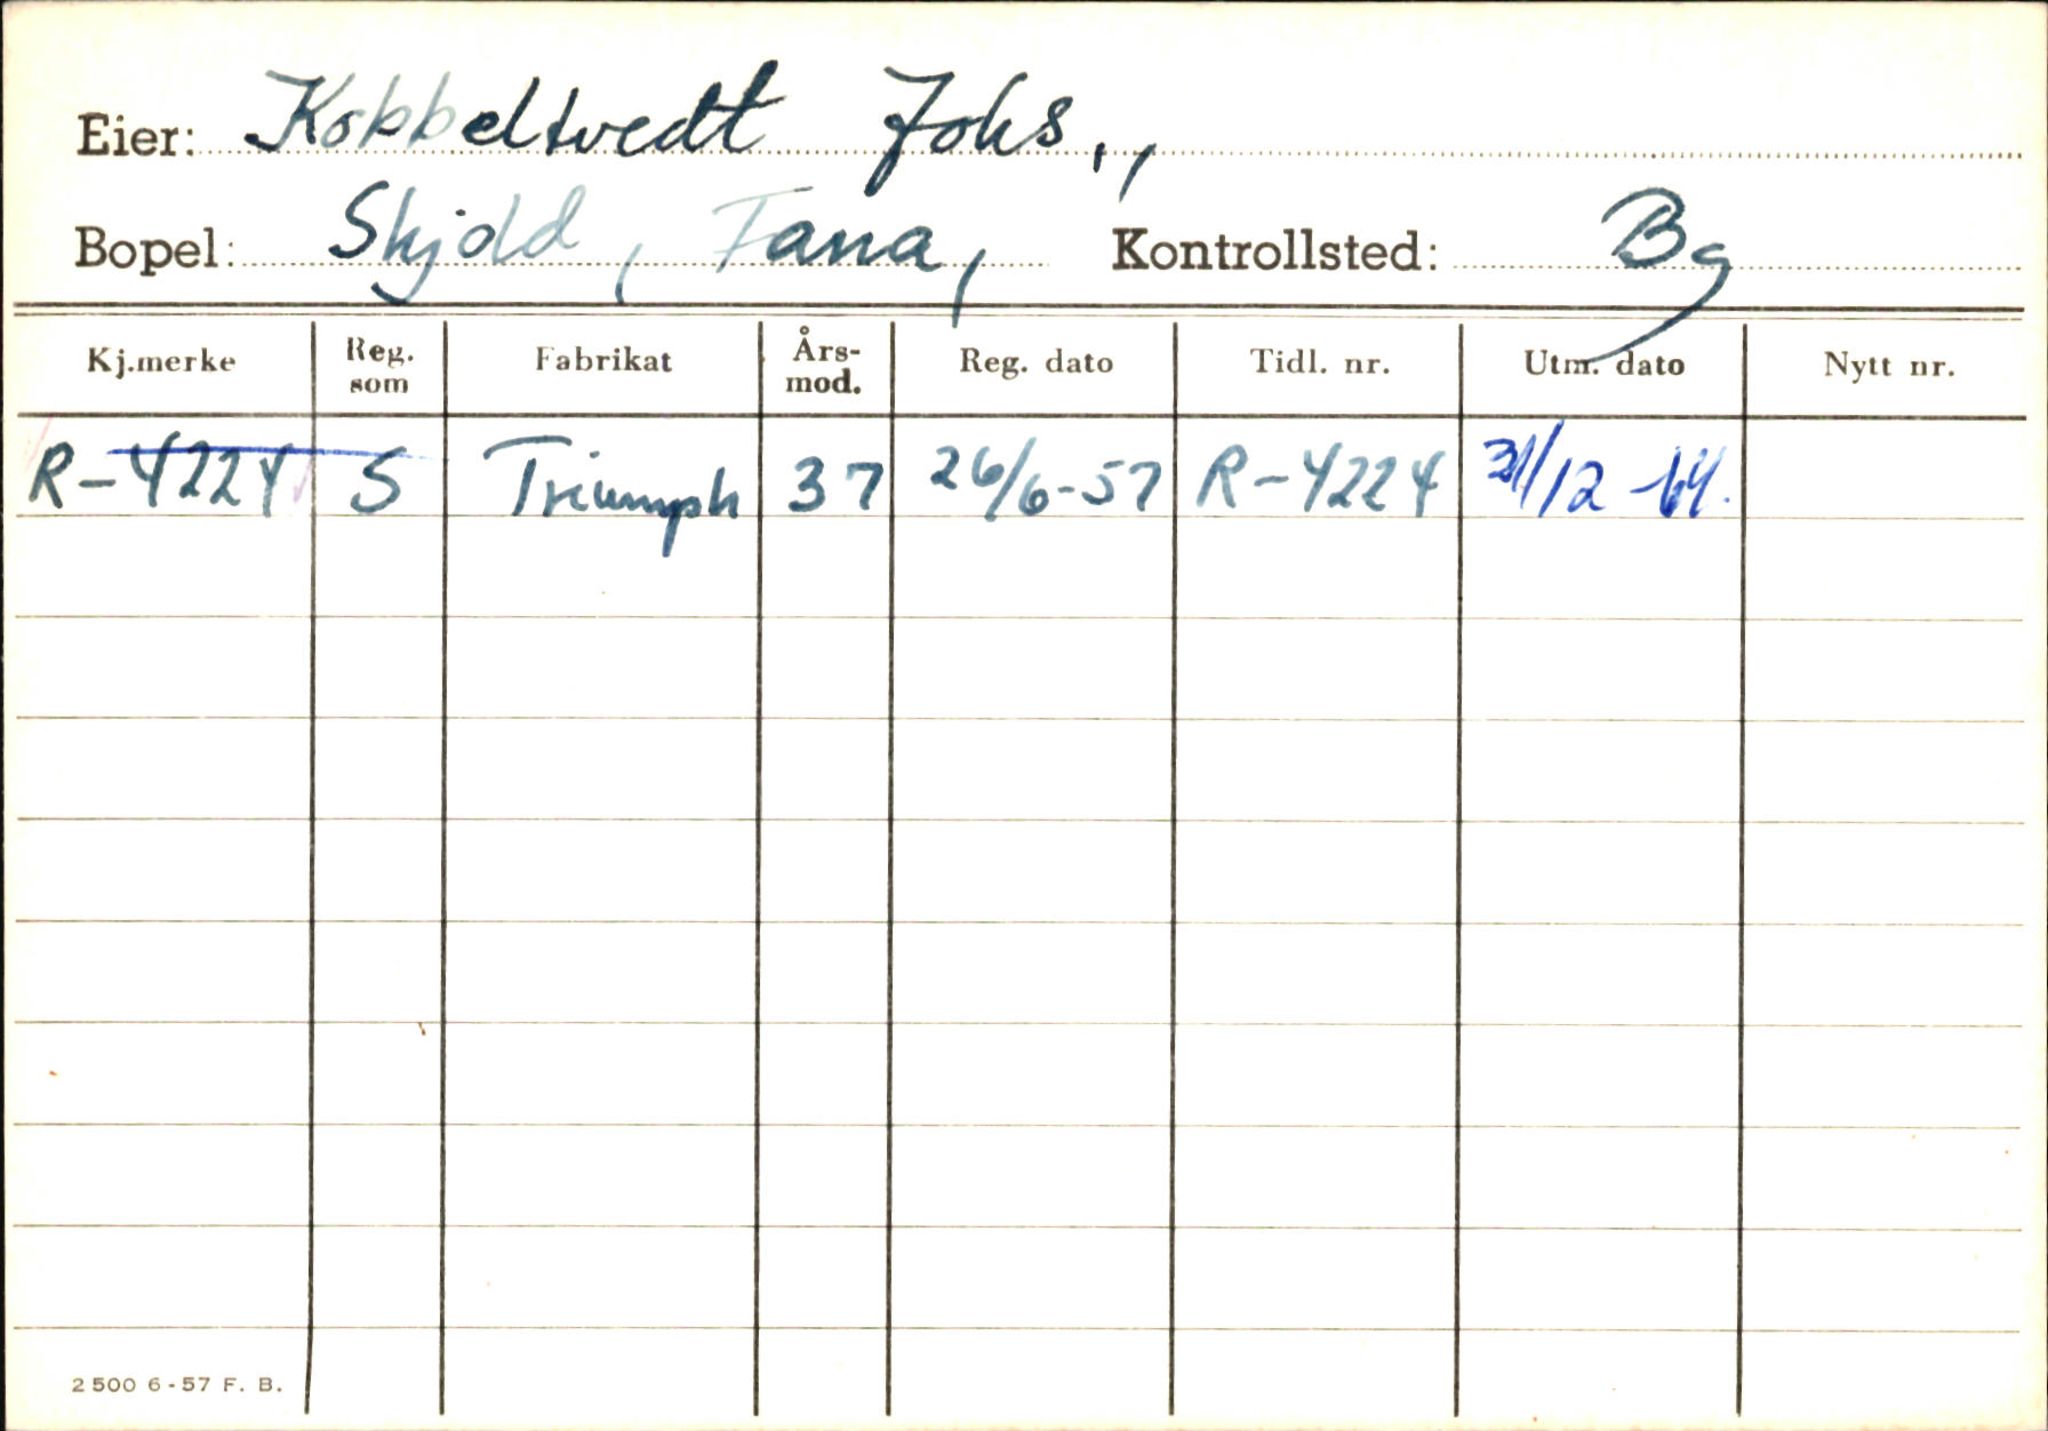 Eier: Kobbeltvedt Johs.,
Bopel: Skjold, Fana, Kontrollsted: Bg
Kj.merke Reg. som Fabrikat Års-mod. Reg. dato Tidl. nr. Utm. dato Nytt nr.
R-4224 S Triumph 37 26/6-57 R-4224 31/12-64.
2500 6-57 F. B.